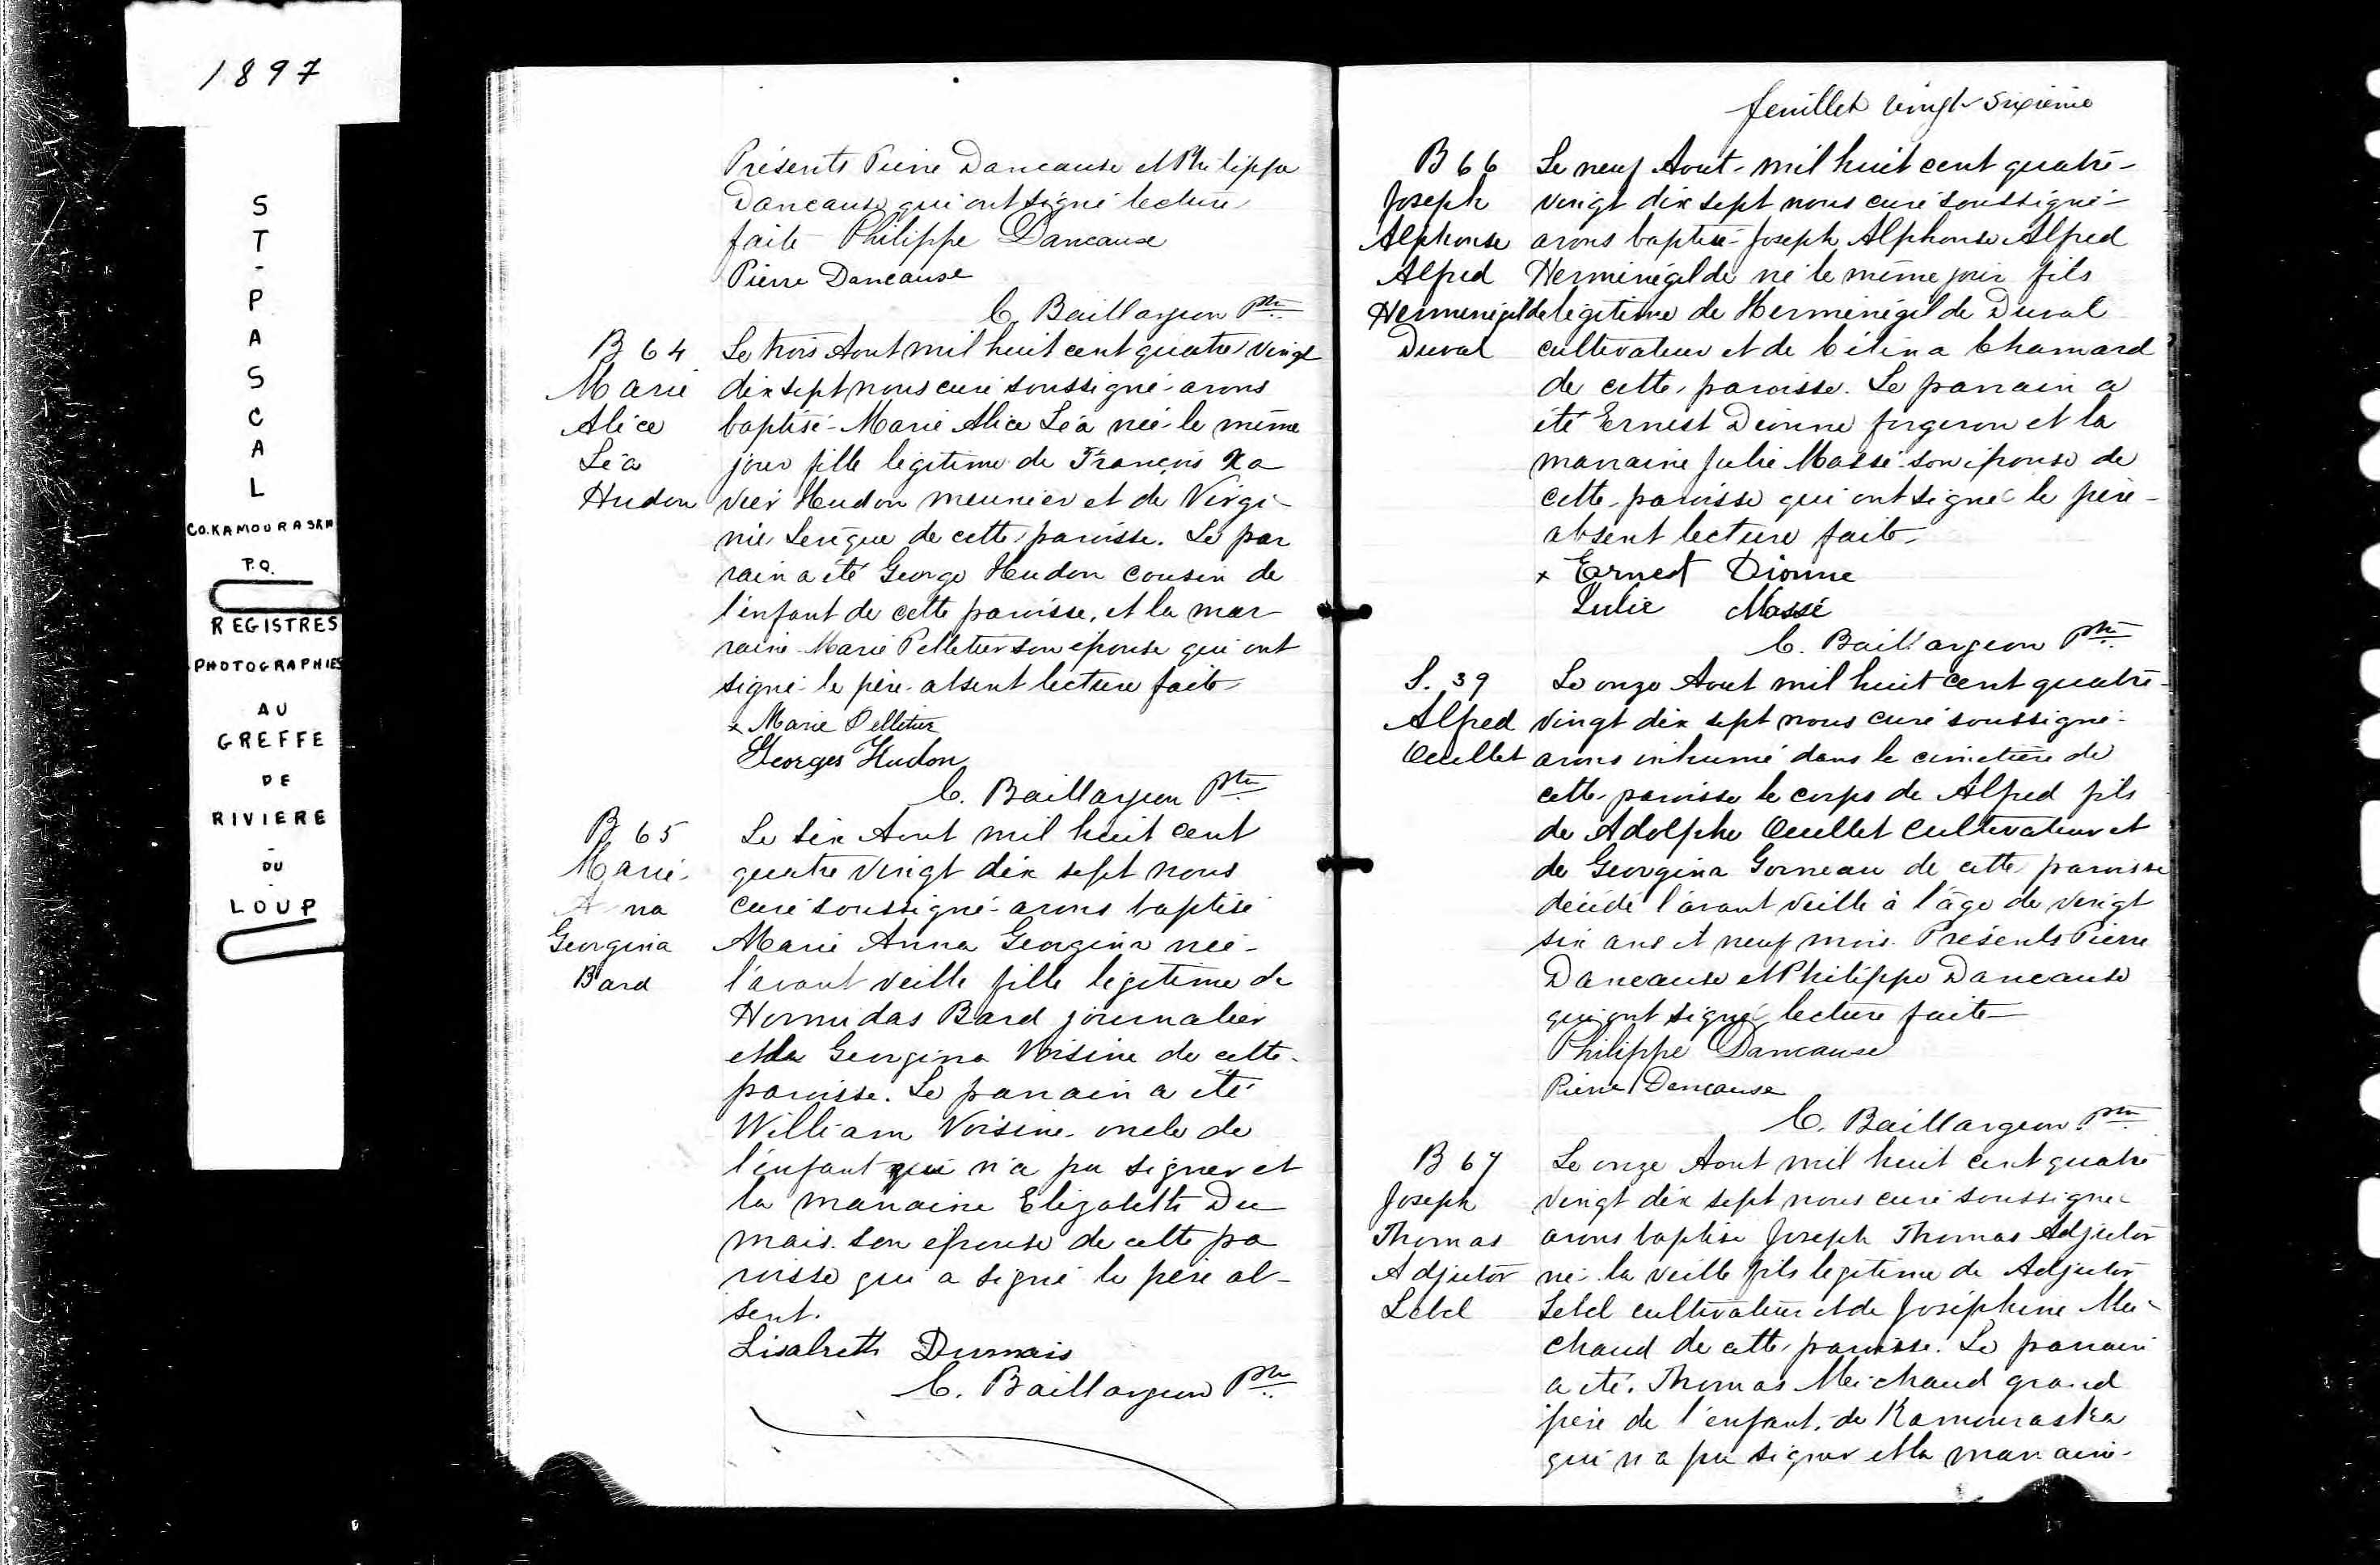 1897
S
T
-
P
A
S
C
A
L
CO. KAMOURASKA
P.Q.
REGISTRES
PHOTOGRAPHIES
AU
GREFFE
DE
RIVIERE
-
DU
-
LOUP
Présents Pierre Dancause et Philippe
Dancause qui ont signé lecture
faite Philippe Dancause
Pierre Dancause
C. Baillargeon Ptre
B 64
Marie
Alice
Léa
Hudon
Le trois Aout mil huit cent quatre vingt
dix sept nous curé soussigné avons
baptisé Marie Alice Léa née le même
jour fille légitime de François Xa
vier Hudon meunier et de Virgi-
nie Levêque de cette paroisse. Le par
rain a été George Hudon cousin de
l'enfant de cette paroisse, et la mar-
raine Marie Pelletier son epouse qui ont
signé le père absent lecture faite
x Marie Pelletier
Georges Hudon
C. Baillargeon Ptre
B 65
Marie
A na
Georgina
Bard
Le six Aout mil huit cent
quatre vingt dix sept nous
curé soussigné avons baptisé
Marie Anna Georgina née
l'avant veille fille légitime de
Hormidas Bard journalier
et de Georgina Voisine de cette
paroisse. Le parrain a été
William Voisine oncle de
l'enfant qui n'a pu signer et
la marraine Elizabeth Du
mais son epouse de cette pa
roisse qui a signé le père ab-
sent.
Lisabeth Dumais
C. Baillargeon Ptre
feuillet vingt-sixième
B 66
Joseph
Alphonse
Alfred
Herménégilde
Duval
Le neuf Aout mil huit cent quatre-
vingt dix sept nous curé soussigné
avons baptisé Joseph Alphonse Alfred
Herménégilde né le même jour fils
légitime de Herménégilde Duval
cultivateur et de Célina Chamard
de cette paroisse. Le parrain a
été Ernest Dionne forgeron et la
marraine Julie Massé son épouse de
cette paroisse qui ont signé le père
absent lecture faite
x Ernest Dionne
Julie Massé
C. Baillargeon Ptre
S. 39
Alfred
Ouellet
Le onze Aout mil huit cent quatre-
vingt dix sept nous curé soussigné
avons inhumé dans le cimetière de
cette paroisse le corps de Alfred fils
de Adolphe Ouellet cultivateur et
de Georgina Gorneau de cette paroisse
décédé l'avant veille à l'âge de vingt
six ans et neuf mois. Présents Pierre
Dancause et Philippe Dancause
qui ont signé lecture faite
Philippe Dancause
Pierre Dancause
C. Baillargeon Ptre
B 67
Joseph
Thomas
Adjutor
Lebel
Le onze Aout mil huit cent quatre
vingt dix sept nous curé soussigné
avons baptisé Joseph Thomas Adjutor
né la veille fils légitime de Adjutor
Lebel cultivateur et de Joséphine Mi-
chaud de cette paroisse. Le parrain
a été Thomas Michaud grand
père de l'enfant, de Kamouraska
qui n'a pu signer et la marraine